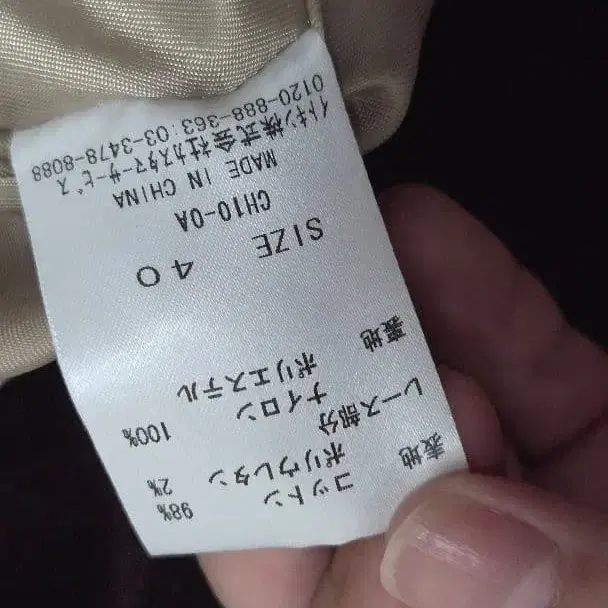 表地 コットン 98%
ポリウレタン 2%
レース部分
ナイロン 100%
裏地 ポリエステル
SIZE 40
CH10-0A
MADE IN CHINA
イトキン株式会社カスタマーサービス
0120-888-363:03-3478-8088